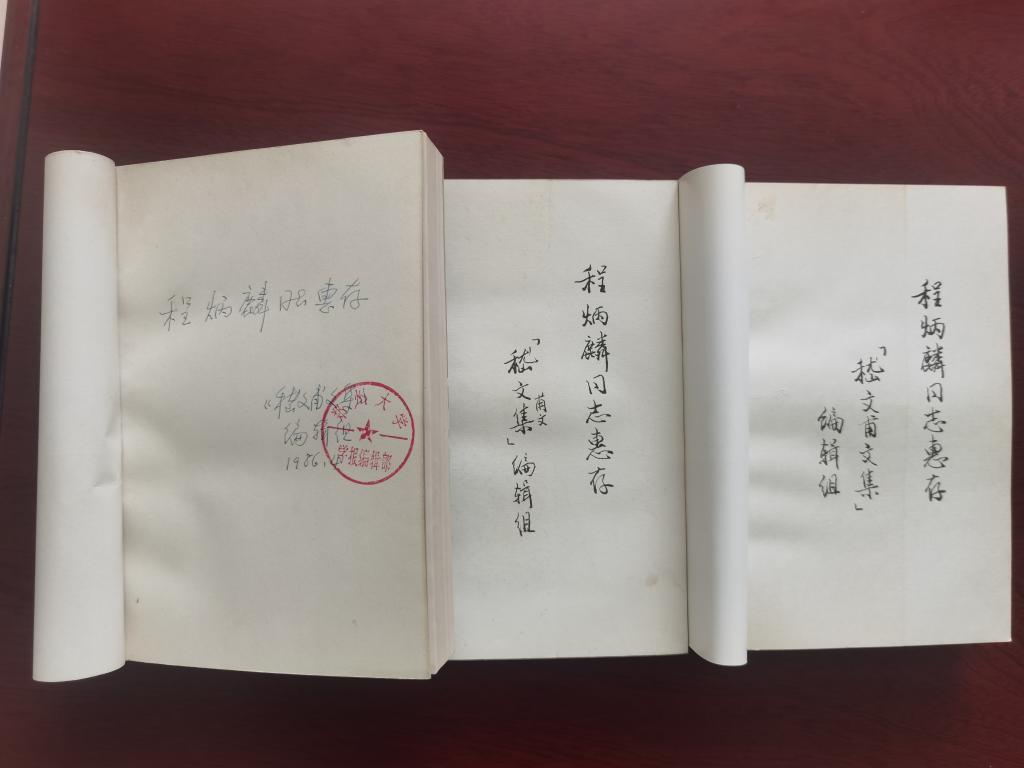 程炳麟同志惠存
《嵇文甫文集》
编辑组
1986.
大学
学报编辑部
程炳麟同志惠存
「嵇文集」编辑组
甫文
程炳麟同志惠存
「嵇文甫文集」
编辑组